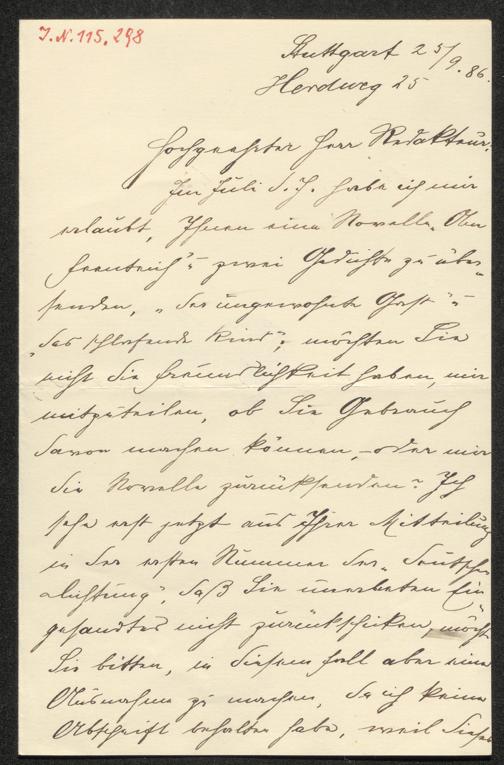 J. N. 115.298
Stuttgart 25/9. 86.
Herdweg 25
Hochgeehrter Herr Redakteur!
Im Juli d. J. habe ich mir
erlaubt, Ihnen eine Novelle „Ober
" u zwei Gedichte zu über„
senden, „der ungewohnte Gast" u
„das schlafende Kind"; möchten Sie
nicht die Freundlichkeit haben, mir
mitzuteilen, ob Sie Gebrauch
davon machen können, – oder mir
die Novelle zurücksenden? Ich
sehe erst jetzt aus Ihrer Mitteilung
in der ersten Nummer der „deutschen
Dichtung", daß Sie unerbeten Ein„
gesandtes nicht zurückschicken, möchte
Sie bitten, in diesem Fall aber eine
Ausnahme zu machen, da ich keine
Abschrift behalten habe, weil dieses